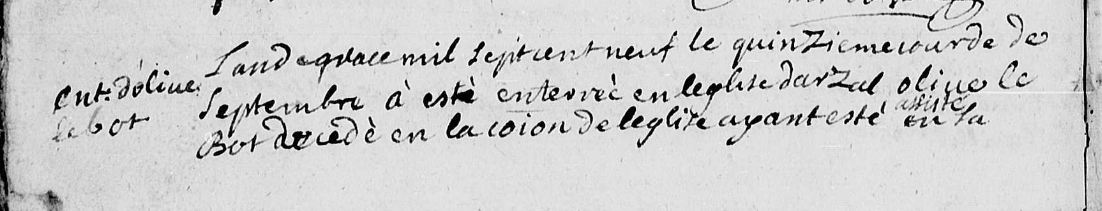 Ent. d'olive
le bot
Land egrace mil septcent neuf le quinziemeiourde de
Septembre à estè enterrèe en leglise darzal olive le
Bot decedè en la coïon de leglize ayant esté assisté en sa